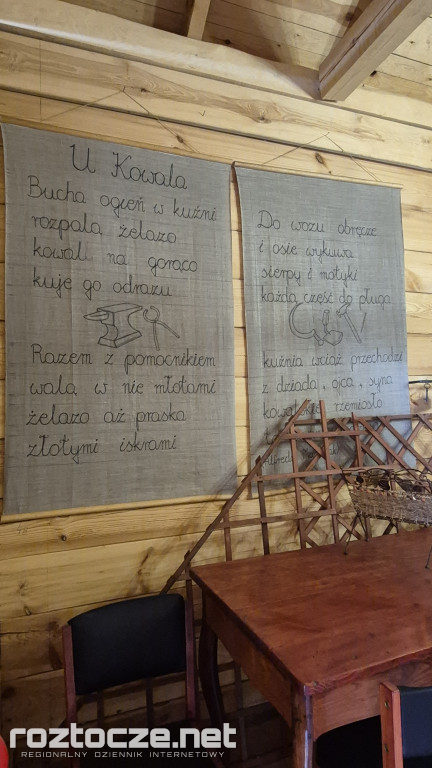 U Kowala
Bucha ogień w kuźni
rozpala żelazo
kowal na gorąco
kuje go odrazu
Razem z pomocnikiem
walą w nie młotami
żelazo aż praska
złotymi iskrami
Do wozu obręcze
i osie wykuwa
sierpy i motyki
każdą część do pługa
kuźnia wciąż przechodzi
z dziada, ojca, syna
rzemiosło
roztocze.net
REGIONALNY DZIENNIK INTERNETOWY